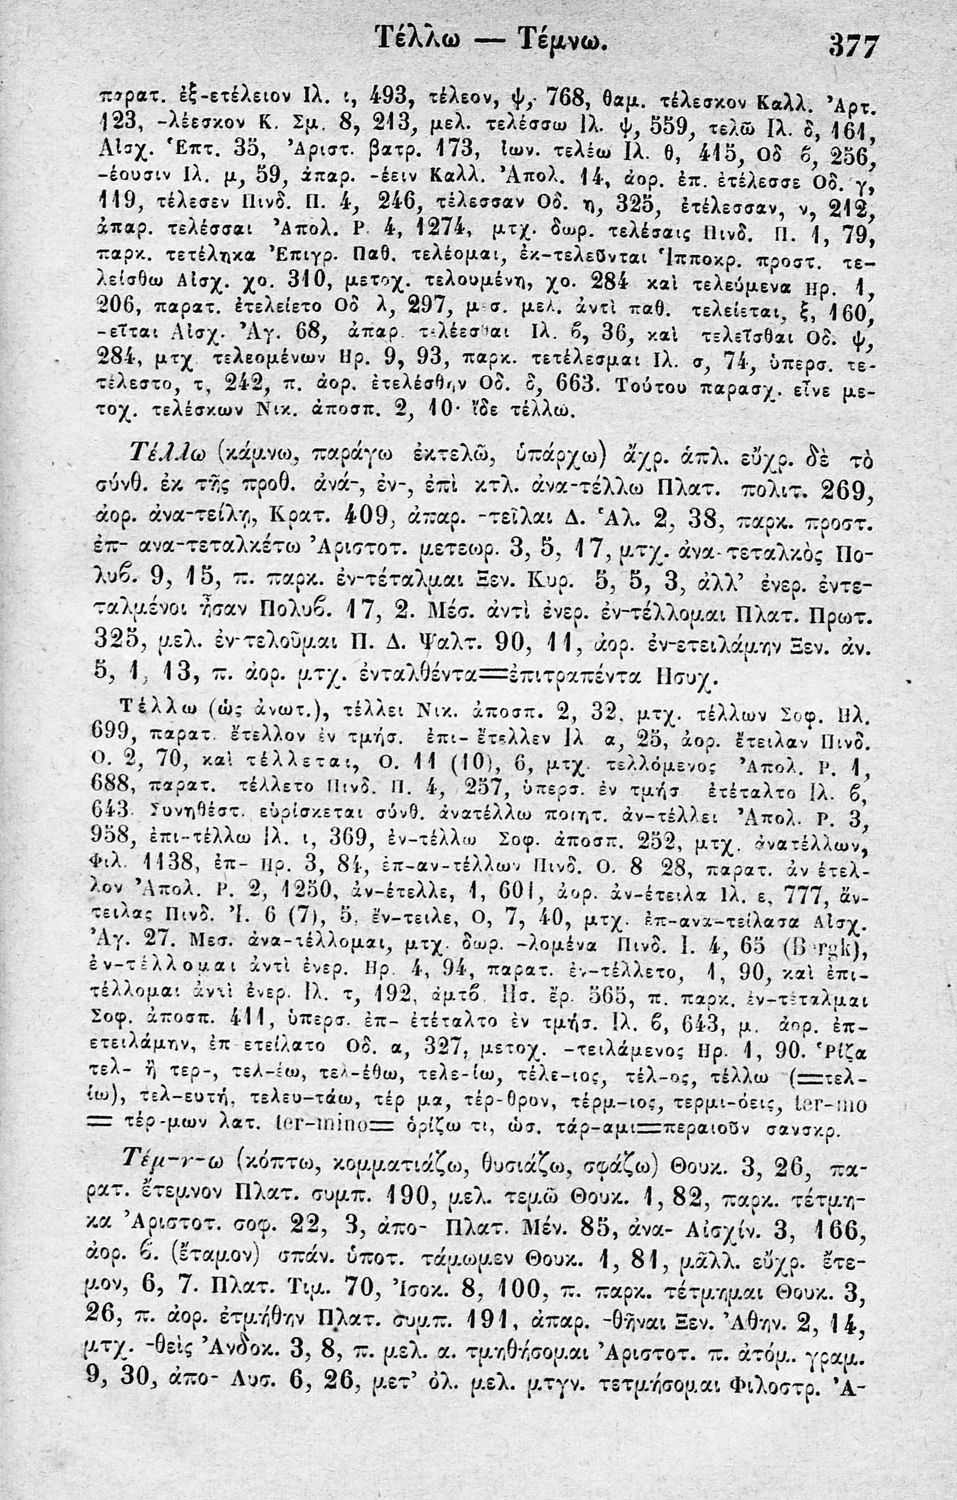 Τέλλω — Τέμνω. 377
παρατ. ἐξ-ετέλειον Ιλ. ι, 493, τέλεον, ψ, 768, θαμ. τέλεσκον Καλλ. Ἀρτ.
123, -λέεσκον Κ. Σμ. 8, 213, μελ. τελέσσω Ιλ. ψ, 559, τελῶ Ιλ. δ, 161,
Αἰσχ. Ἑπτ. 35, Ἀριστ. βατρ. 173, Ἰων. τελέω Ιλ. θ, 415, Οδ ϐ, 256,
-έουσιν Ιλ. μ, 59, ἀπαρ. -έειν Καλλ. Ἀπολ. 14, ἀορ. ἐπ. ἐτέλεσσε Οδ. γ,
119, τέλεσεν Πινδ. Π. 4, 246, τέλεσσαν Οδ. η, 325, ἐτέλεσσαν, ν, 212,
ἀπαρ. τελέσσαι Ἀπολ. Ρ 4, 1274, μτχ. δωρ. τελέσαις Πινδ. Π. 1, 79,
παρκ. τετέληκα Ἐπιγρ. Παθ. τελέομαι, ἐκ-τελεῦνται Ἱπποκρ. προστ. τε-
λείσθω Αἰσχ. χο. 310, μετοχ. τελουμένη, χο. 284 καὶ τελεύμενα Ηρ. 1,
206, παρατ. ἐτελείετο Οδ λ, 297, μεσ. μελ. ἀντὶ παθ. τελείεται, ξ, 160,
-εῖται Αἰσχ. Ἀγ. 68, ἀπαρ. τελέεσθαι Ιλ. ϐ, 36, καὶ τελεῖσθαι Οδ. ψ,
284, μτχ τελεομένων Ηρ. 9, 93, παρκ. τετέλεσμαι Ιλ. σ, 74, ὑπερσ. τε-
τέλεστο, τ, 242, π. ἀορ. ἐτελέσθην Οδ. δ, 663. Τούτου παρασχ. εἶνε με-
τοχ. τελέσκων Νικ. ἀποσπ. 2, 10· ἴδε τέλλω.
Τέλλω (κάμνω, παράγω ἐκτελῶ, ὑπάρχω) ἄχρ. ἁπλ. εὔχρ. δὲ τὸ
σύνθ. ἐκ τῆς προθ. ἀνά-, ἐν-, ἐπὶ κτλ. ἀνα-τέλλω Πλατ. πολιτ. 269,
ἀορ. ἀνα-τείλῃ, Κρατ. 409, ἀπαρ. -τεῖλαι Δ. Ἁλ. 2, 38, παρκ. προστ.
ἐπ- ανα-τεταλκέτω Ἀριστοτ. μετεωρ. 3, 5, 17, μτχ. ἀνα-τεταλκὸς Πο-
λυϐ. 9, 15, π. παρκ. ἐν-τέταλμαι Ξεν. Κυρ. 5, 5, 3, ἀλλ’ ἐνερ. ἐντε-
ταλμένοι ἦσαν Πολυϐ. 17, 2. Μέσ. ἀντὶ ἐνερ. ἐν-τέλλομαι Πλατ. Πρωτ.
325, μελ. ἐν-τελοῦμαι Π. Δ. Ψαλτ. 90, 11, ἀορ. ἐν-ετειλάμην Ξεν. ἀν.
5, 1, 13, π. ἀορ. μτχ. ἐνταλθέντα=ἐπιτραπέντα Ησυχ.
Τέλλω (ὡς ἀνωτ.), τέλλει Νικ. ἀποσπ. 2, 32. μτχ. τέλλων Σοφ. Ηλ.
699, παρατ. ἔτελλον ἐν τμήσ. ἐπι- ἔτελλεν Ιλ α, 25, ἀορ. ἔτειλαν Πινδ.
Ο. 2, 70, καὶ τέλλεται, Ο. 11 (10), 6, μτχ. τελλόμενος Ἀπολ. Ρ. 1,
688, παρατ. τέλλετο Πινδ. Π. 4, 257, ὑπερσ. ἐν τμήσ ἐτέταλτο Ιλ. ϐ,
643. Συνηθέστ. εὑρίσκεται σύνθ. ἀνατέλλω ποιητ. ἀν-τέλλει Ἀπολ. Ρ. 3,
958, ἐπι-τέλλω Ιλ. ι, 369, ἐν-τέλλω Σοφ. ἀποσπ. 252, μτχ. ἀνατέλλων,
Φιλ 1138, ἐπ- Ηρ. 3, 84, ἐπ-αν-τέλλων Πινδ. Ο. 8 28, παρατ. ἀν έτελ-
λον Ἀπολ. Ρ. 2, 1250, ἀν-έτελλε, 1, 601, ἀορ. ἀν-έτειλα Ιλ. ε, 777, ἄν-
τειλας Πινδ. Ἰ. 6 (7), 5, ἔν-τειλε, Ο, 7, 40, μτχ. ἐπ-ανα-τείλασα Αἰσχ.
Ἀγ. 27. Μεσ. ἀνα-τέλλομαι, μτχ δωρ. -λομένα Πινδ. Ι. 4, 65 (Bergk),
ἐν-τέλλομαι ἀντὶ ἐνερ. Ηρ 4, 94, παρατ. ἐν-τέλλετο, 1, 90, καὶ ἐπι-
τέλλομαι ἀντὶ ἐνερ. Ιλ. τ, 192, ἀμτϐ Ησ. ἔρ. 565, π. παρκ. ἐν-τέταλμαι
Σοφ. ἀποσπ. 411, ὑπερσ. ἐπ- ἐτέταλτο ἐν τμήσ. Ιλ. ϐ, 643, μ. ἀορ. ἐπ-
ετειλάμην, ἐπ ετείλατο Οδ. α, 327, μετοχ. -τειλάμενος Ηρ. 1, 90. Ῥίζα
τελ- ἢ τερ-, τελ-έω, τελ-έθω, τελε-ίω, τέλε-ιος, τέλ-ος, τέλλω (=τελ-
ίω), τελ-ευτή, τελευ-τάω, τέρ μα, τέρ-θρον, τέρμ-ιος, τερμι-όεις, ter-mo
= τέρ-μων λατ. ter-mino= ὁρίζω τι, ὡσ. τάρ-αμι=περαιοῦν σανσκρ.
Τέμ-ν-ω (κόπτω, κομματιάζω, θυσιάζω, σφάζω) Θουκ. 3, 26, πα-
ρατ. ἔτεμνον Πλατ. συμπ. 190, μελ. τεμῶ Θουκ. 1, 82, παρκ. τέτμη-
κα Ἀριστοτ. σοφ. 22, 3, ἀπο- Πλατ. Μέν. 85, ἀνα- Αἰσχίν. 3, 166,
ἀορ. ϐ. (ἔταμον) σπάν. ὑποτ. τάμωμεν Θουκ. 1, 81, μᾶλλ. εὔχρ. ἔτε-
μον, 6, 7. Πλατ. Τιμ. 70, Ἰσοκ. 8, 100, π. παρκ. τέτμημαι Θουκ. 3,
26, π. ἀορ. ἐτμήθην Πλατ. συμπ. 191, ἀπαρ. -θῆναι Ξεν. Ἀθην. 2, 14,
μτχ. -θεὶς Ἀνδοκ. 3, 8, π. μελ. α. τμηθήσομαι Ἀριστοτ. π. ἀτόμ. γραμ.
9, 30, ἀπο- Λυσ. 6, 26, μετ’ ὀλ. μελ. μτγν. τετμήσομαι Φιλοστρ. Ἀ-